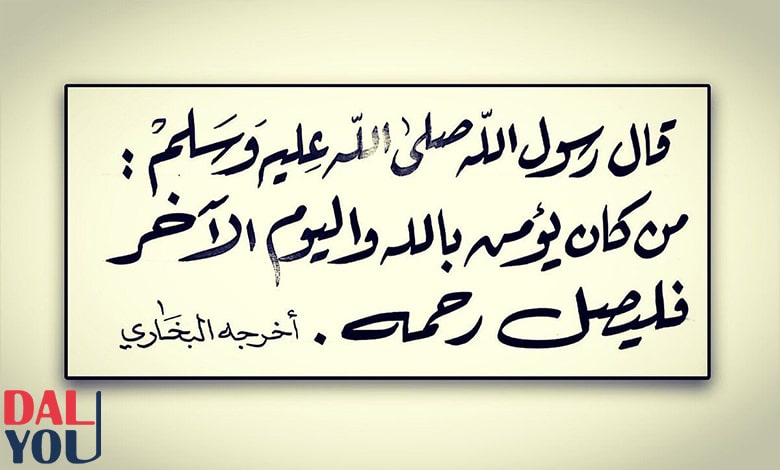 قال رسول اللّه صلىٰ اللّه عِليه وَسَلمْ :
من كان يؤمن بالله واليوم الآخر
فليصل رحمه . أخرجه البخَاري
DAL
YOU